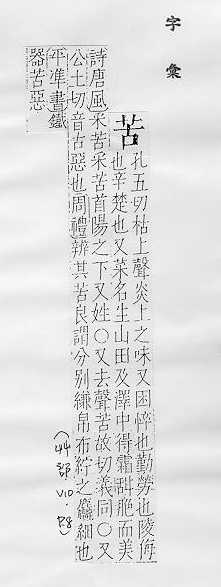 字彙
苦孔五切枯上聲炎上之味又困悴也勤勞也陵侮
也辛楚也又菜名生山田及澤中得霜甛脃而美
詩唐風采苦采苦首陽之下又姓○又去聲苦故切義同○又
公土切音古惡也周禮辨其苦良謂分別縑帛布紵之麤細也
平準書鐵
器苦惡
(44部 V10. P.8)